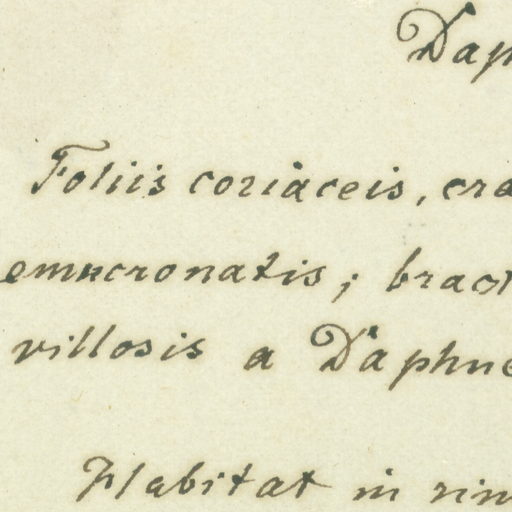 Dap
Foliis coriaceis, cra
emucronatis; bract
villosis a Daphne
Habitat in rim